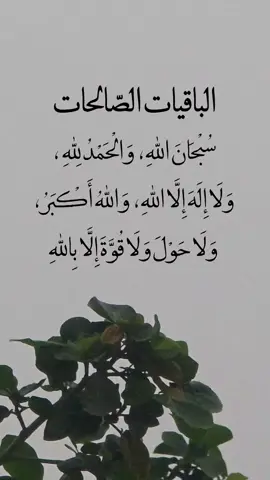 الباقيات الصّالحات
سُبْحَانَ اللهِ، وَالْحَمْدُ لِلهِ،
وَلَا إِلَهَ إِلَّا اللهِ، وَاللهُ أَكْبَرُ،
وَلَا حَوْلَ وَلَا قُوَّةَ إِلَّا بِاللهِ